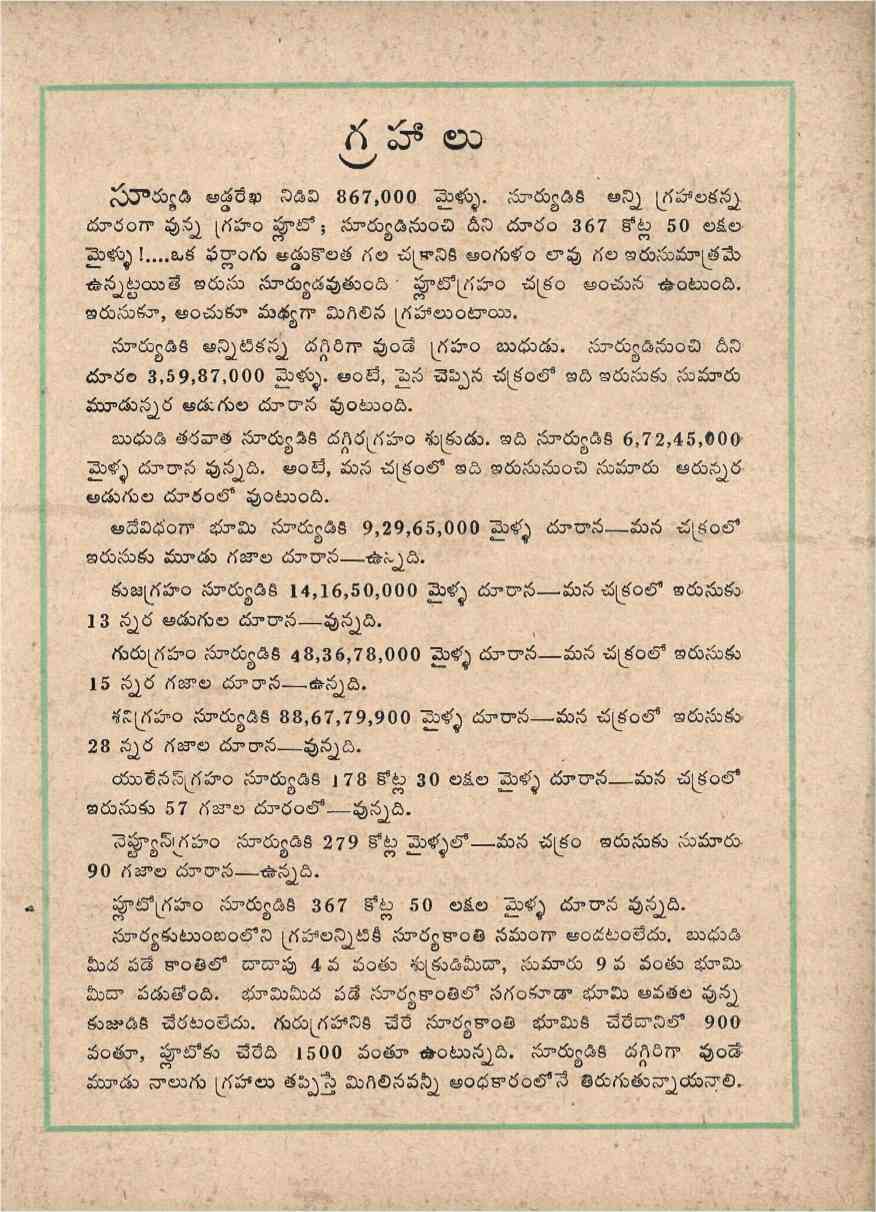 గ్రహాలు
సూర్యుడి అడ్డరేఖ నిడివి 867,000 మైళ్ళు. సూర్యుడికి అన్ని గ్రహాలకన్న
దూరంగా వున్న గ్రహం ప్లూటో; సూర్యుడినుంచి దీని దూరం 367 కోట్ల 50 లక్షల
మైళ్ళు!....ఒక ఫర్లాంగు అడ్డుకొలత గల చక్రానికి అంగుళం లావు గల ఇరుసుమాత్రమే
ఉన్నట్టయితే ఇరుసు సూర్యుడవుతుంది ప్లూటోగ్రహం చక్రం అంచున ఉంటుంది.
ఇరుసుకూ, అంచుకూ మధ్యగా మిగిలిన గ్రహాలుంటాయి.
సూర్యుడికి అన్నిటికన్న దగ్గిరిగా వుండే గ్రహం బుధుడు. సూర్యుడినుంచి దీని
దూరం 3,59,87,000 మైళ్ళు. అంటే, పైన చెప్పిన చక్రంలో ఇది ఇరుసుకు సుమారు
మూడున్నర అడుగుల దూరాన వుంటుంది.
బుధుడి తరవాత సూర్యుడికి దగ్గిరగ్రహం శుక్రుడు. ఇది సూర్యుడికి 6,72,45,000
మైళ్ళ దూరాన వున్నది. అంటే, మన చక్రంలో ఇది ఇరుసునుంచి సుమారు ఆరున్నర
అడుగుల దూరంలో వుంటుంది.
అదేవిధంగా భూమి సూర్యుడికి 9,29,65,000 మైళ్ళ దూరాన—మన చక్రంలో
ఇరుసుకు మూడు గజాల దూరాన—ఉన్నది.
కుజగ్రహం సూర్యుడికి 14,16,50,000 మైళ్ళ దూరాన—మన చక్రంలో ఇరుసుకు
13 న్నర అడుగుల దూరాన—వున్నది.
గురుగ్రహం సూర్యుడికి 48,36,78,000 మైళ్ళ దూరాన—మన చక్రంలో ఇరుసుకు
15 న్నర గజాల దూరాన—ఉన్నది.
శనిగ్రహం సూర్యుడికి 88,67,79,900 మైళ్ళ దూరాన—మన చక్రంలో ఇరుసుకు
28 న్నర గజాల దూరాన—వున్నది.
యురేనస్‌గ్రహం సూర్యుడికి 178 కోట్ల 30 లక్షల మైళ్ళ దూరాన—మన చక్రంలో
ఇరుసుకు 57 గజాల దూరంలో—వున్నది.
నెప్ట్యూన్‌గ్రహం సూర్యుడికి 279 కోట్ల మైళ్ళలో—మన చక్రం ఇరుసుకు సుమారు
90 గజాల దూరాన—ఉన్నది.
ప్లూటోగ్రహం సూర్యుడికి 367 కోట్ల 50 లక్షల మైళ్ళ దూరాన వున్నది.
సూర్యకుటుంబంలోని గ్రహాలన్నిటికీ సూర్యకాంతి సమంగా అందటంలేదు. బుధుడి
మీద పడే కాంతిలో దాదాపు 4 వ వంతు శుక్రుడిమీదా, సుమారు 9 వ వంతు భూమి
మీదా పడుతోంది. భూమిమీద పడే సూర్యకాంతిలో సగంకూడా భూమి అవతల వున్న
కుజుడికి చేరటంలేదు. గురుగ్రహానికి చేరే సూర్యకాంతి భూమికి చేరేదానిలో 900
వంతూ, ప్లూటోకు చేరేది 1500 వంతూ ఉంటున్నది. సూర్యుడికి దగ్గిరిగా వుండే
మూడు నాలుగు గ్రహాలు తప్పిస్తే మిగిలినవన్నీ అంధకారంలోనే తిరుగుతున్నాయనాలి.